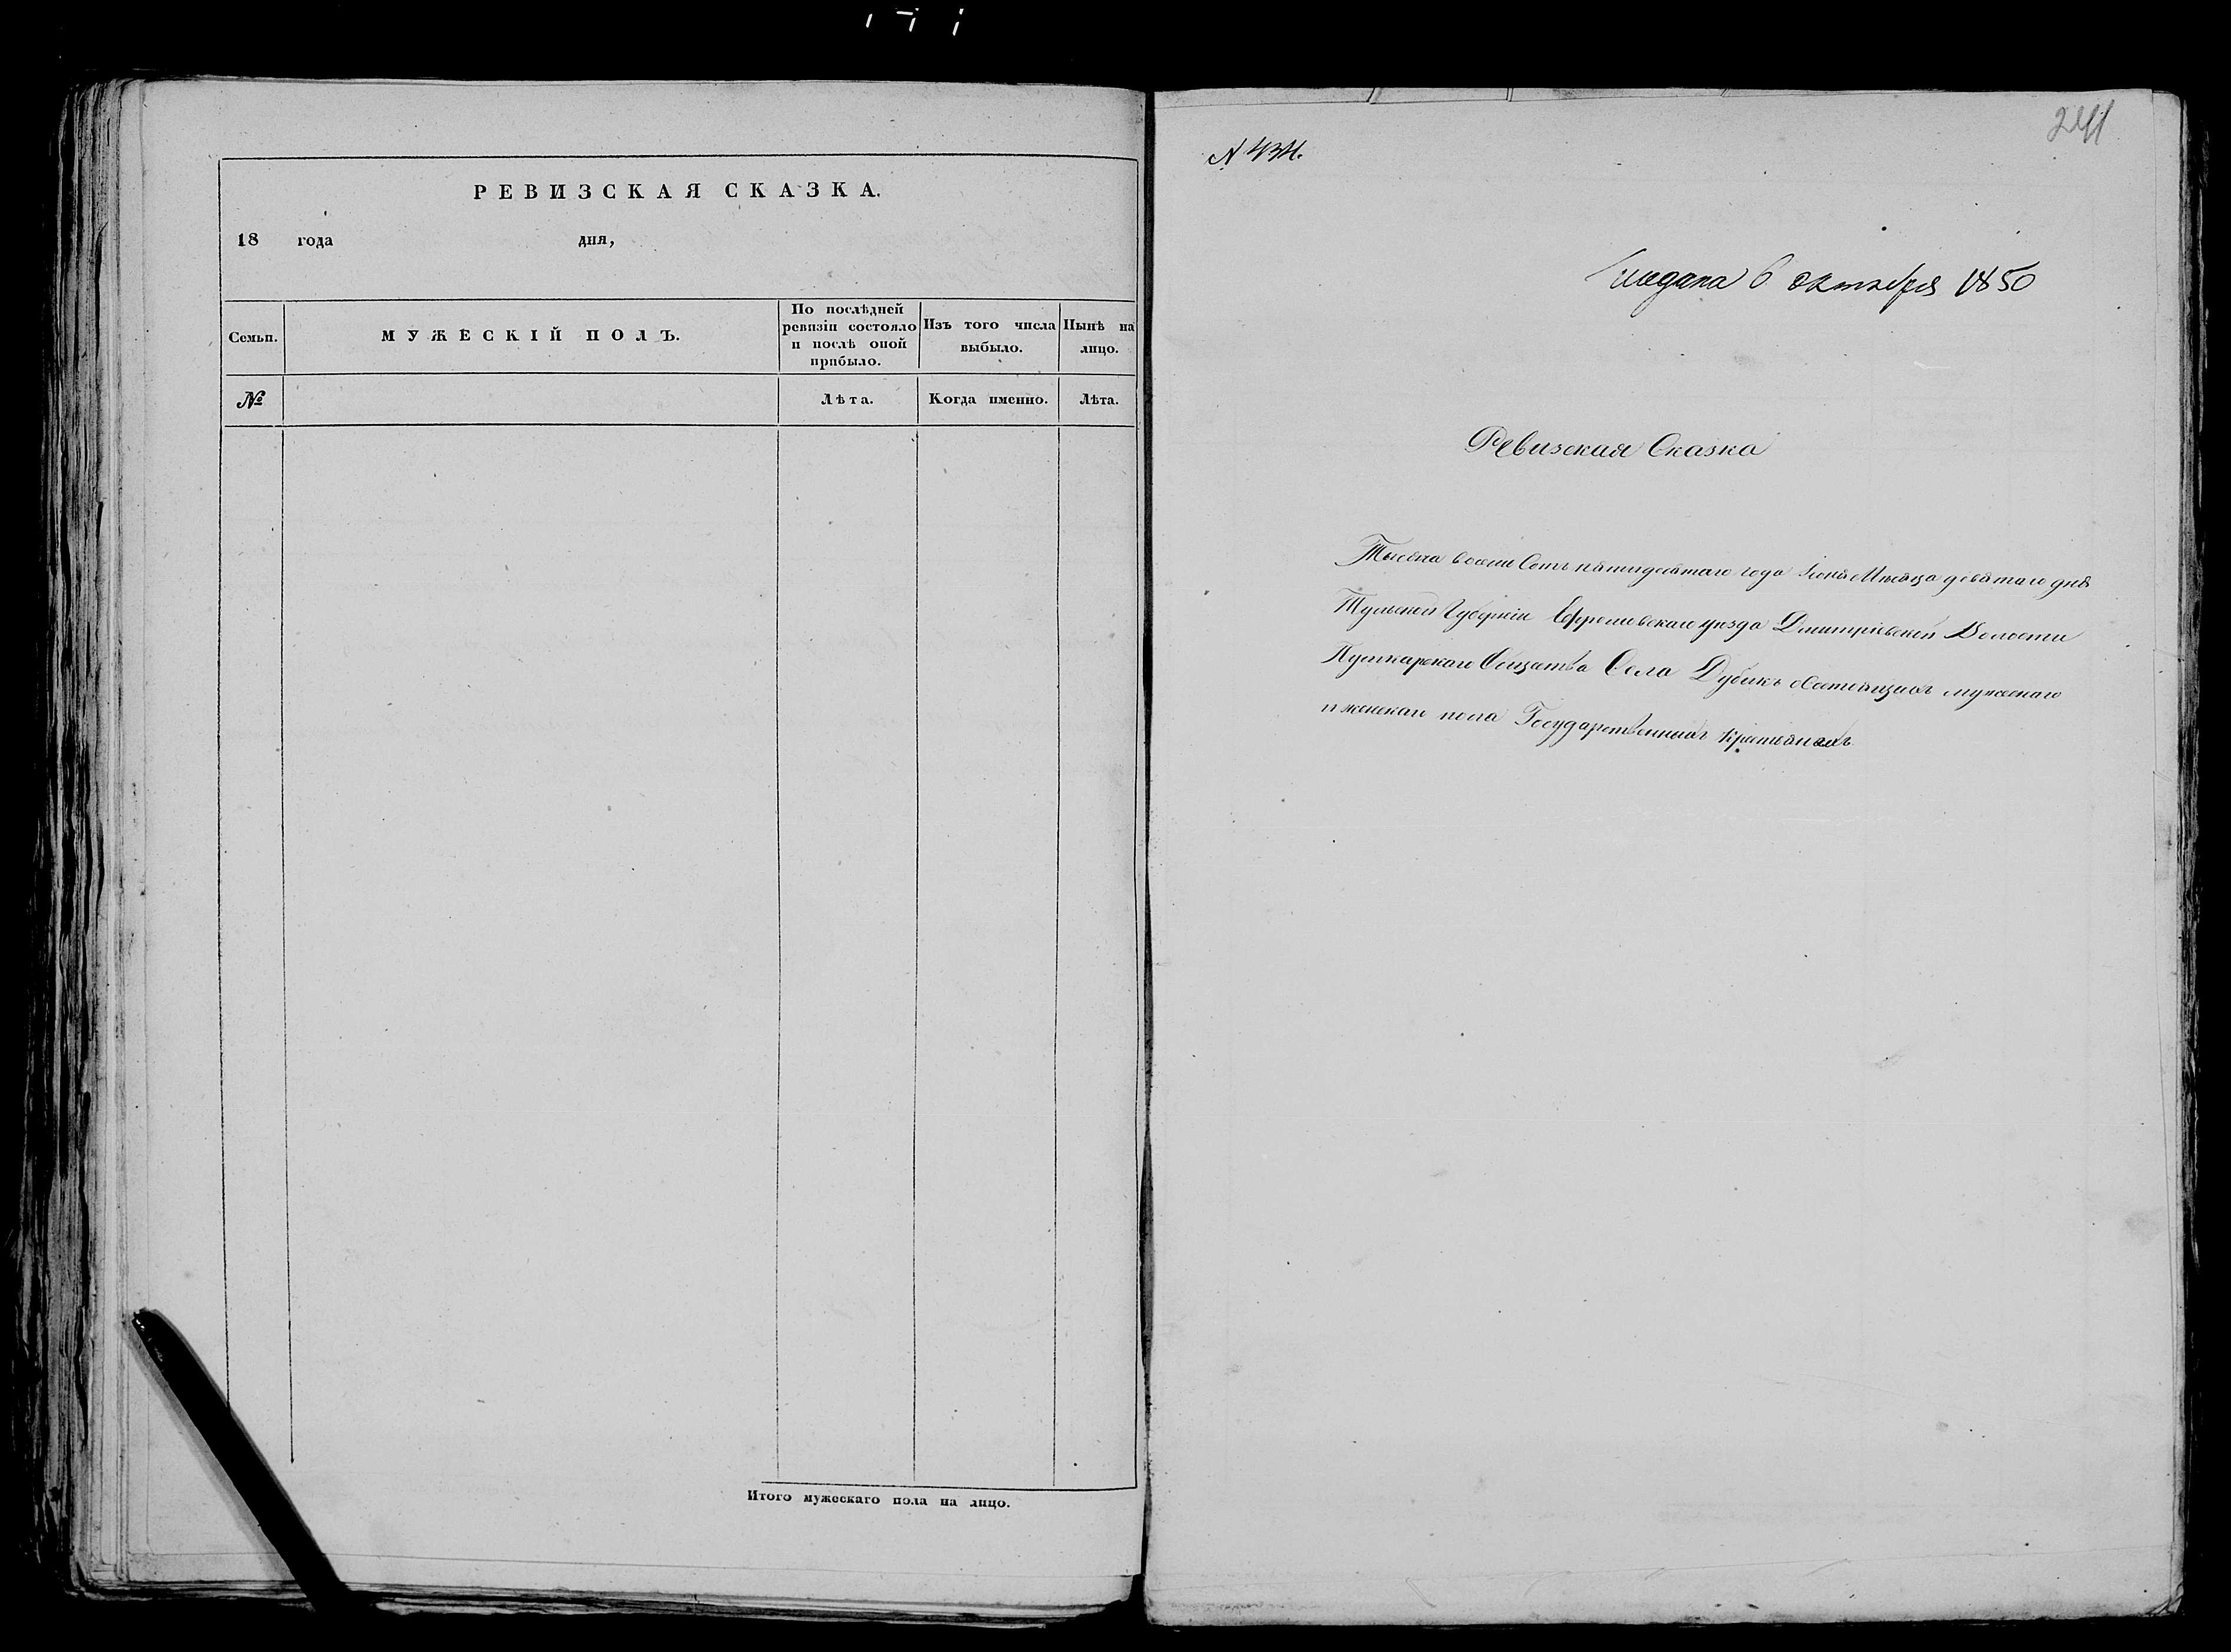 РЕВИЗСКАЯ СКАЗКА.
18 года дня,
Семьи.
МУЖЕСКІЙ ПОЛЪ.
По послѣдней
ревизіи состояло
и послѣ оной
прибыло.
Изъ того числа
выбыло.
Нынѣ на
лицо.
№
Лѣта.
Когда именно.
Лѣта.
Итого мужескаго пола на лицо.
241
N 434.
6 октября 1850
Ревизская Сказка
Тысяча восемь Сотъ пятидесятаго года Іюня Мѣсяца девятаго дня
Тульской Губерніи Ефремовскаго уѣзда Дмитріевской Волости
Пушкарскаго Общества Села Дубикъ о Состоящихъ мужескаго
и женскаго пола Государственныхъ Крестьянахъ